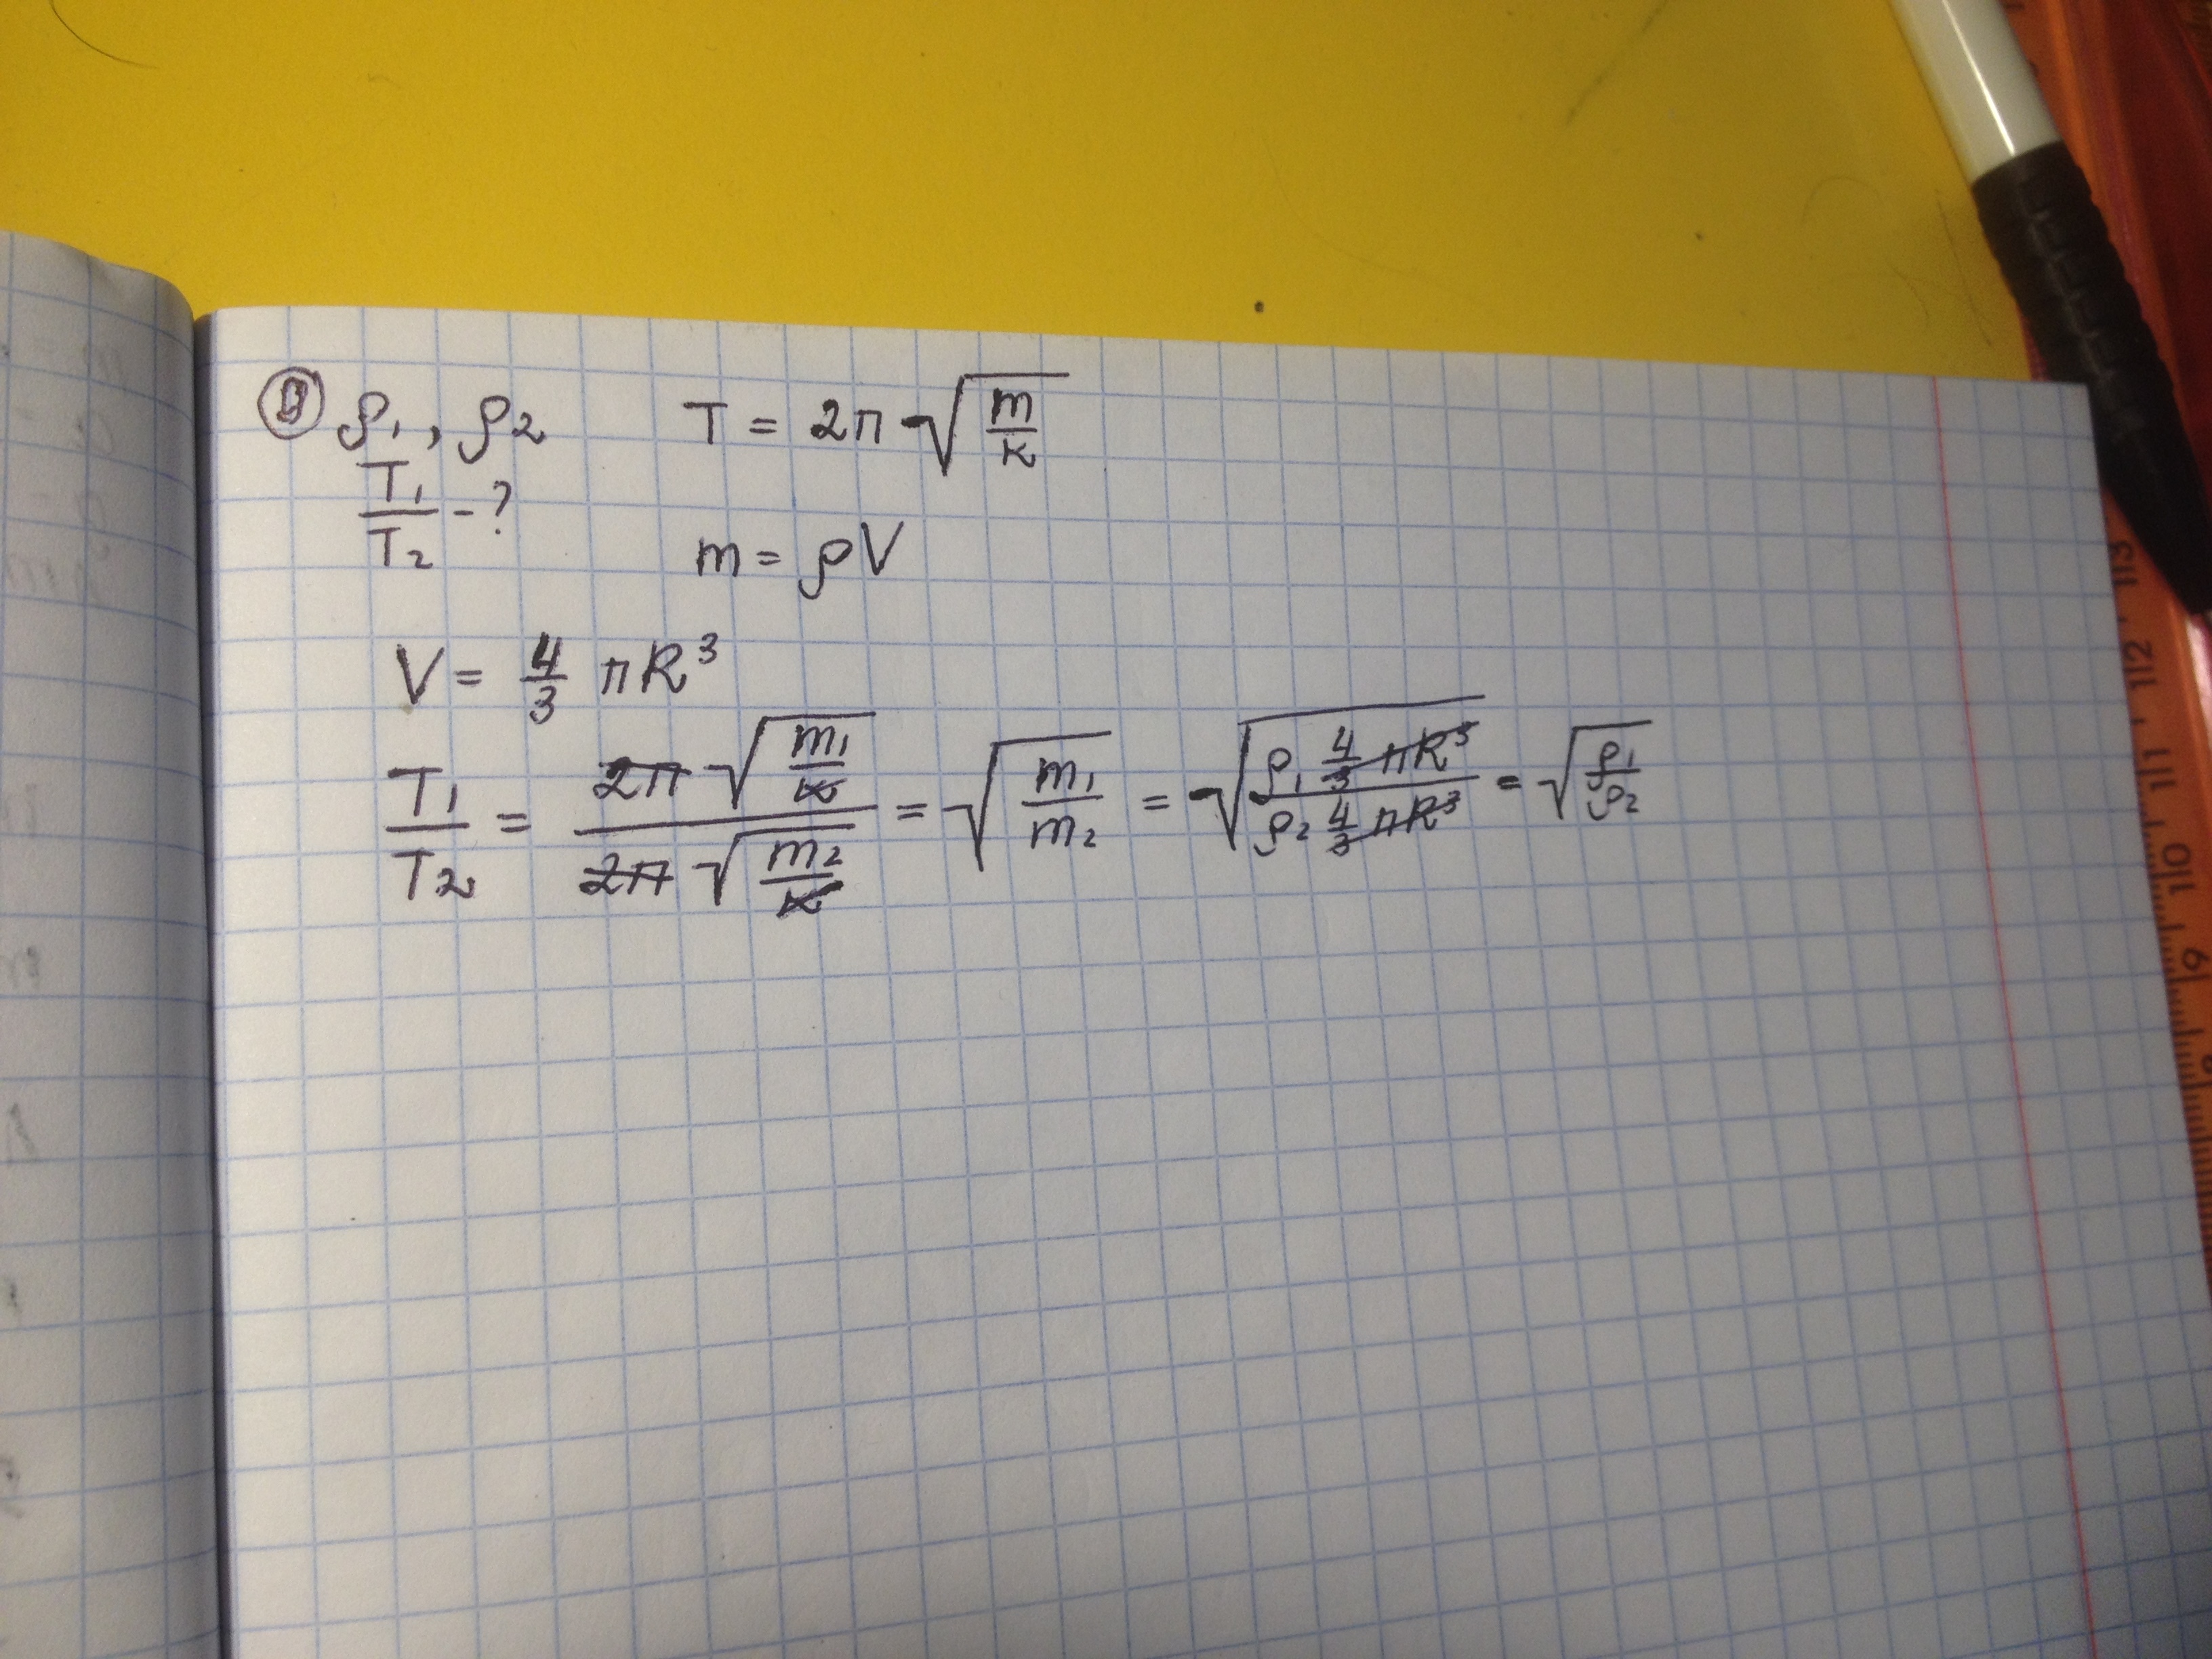 ρ₁, ρ₂ T = 2π √(m/k)
T₁/T₂ - ?
m = ρV
V = 4/3 πR³
T₁/T₂ = 2π √(m₁/k) / 2π √(m₂/k) = √(m₁/m₂) = √(ρ₁ 4/3 πR³ / ρ₂ 4/3 πR³) = √(ρ₁/ρ₂)
13
12
11
10
9